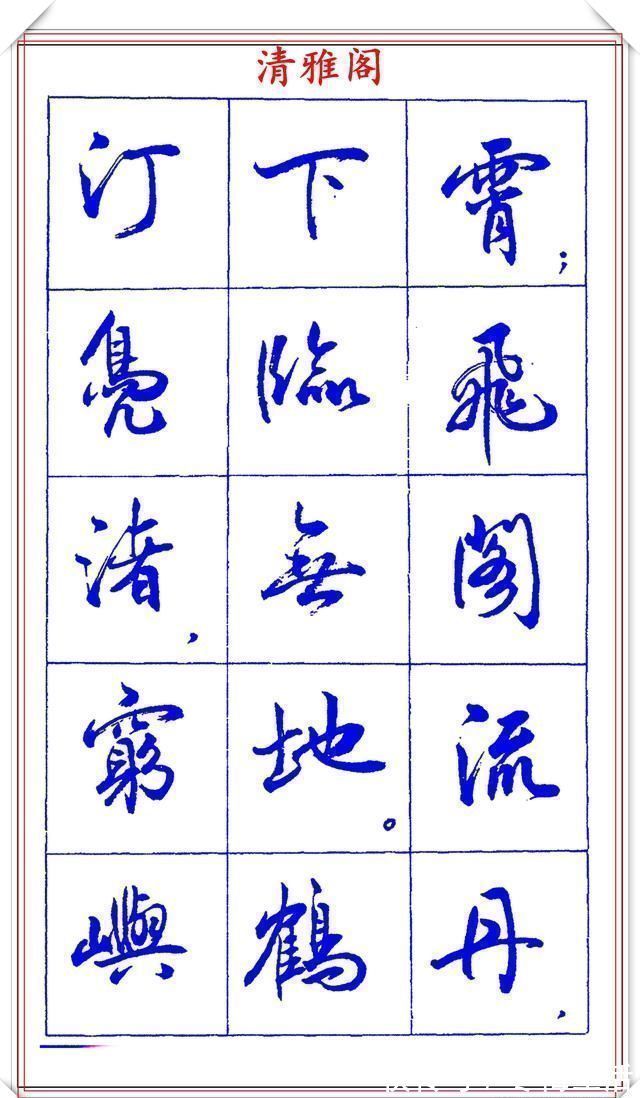 清雅阁
霄；飛閣流丹，
下臨無地。鶴
汀鳧渚，窮嶼